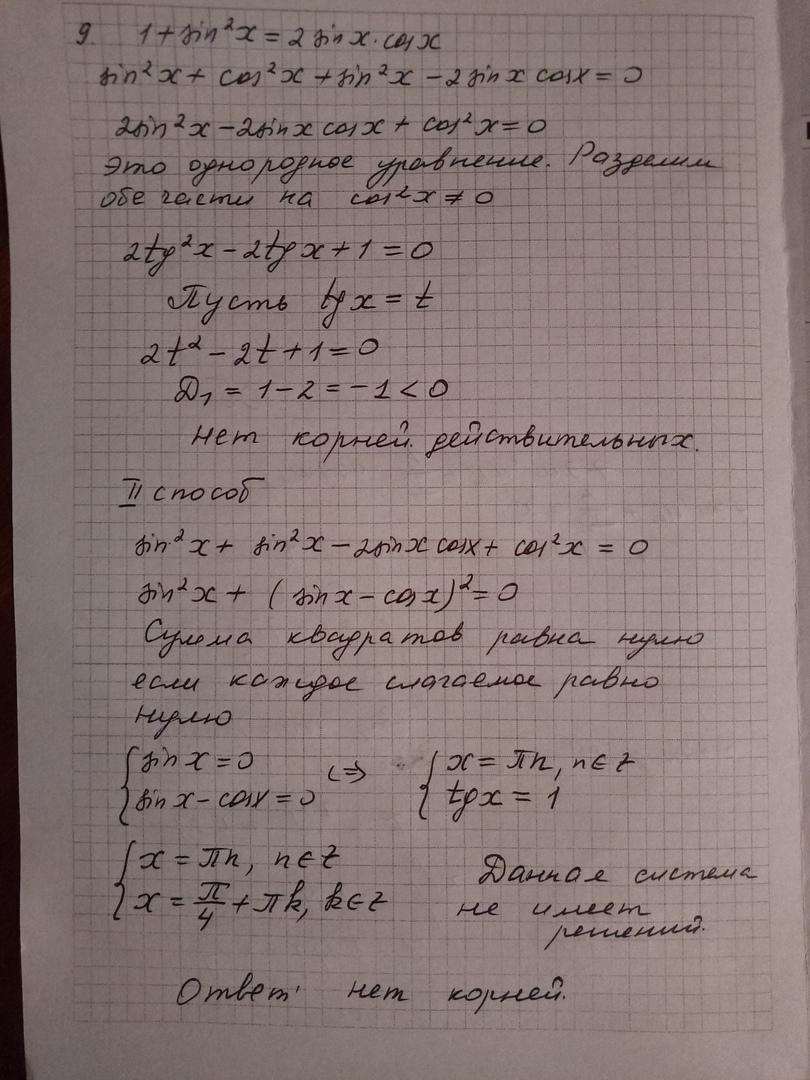 9. 1 + sin²x = 2 sin x · cos x
sin²x + cos²x + sin²x − 2 sin x cos x = 0
2sin²x − 2sin x cos x + cos²x = 0
Это однородное уравнение. Разделим
обе части на cos²x ≠ 0
2tg²x − 2tg x + 1 = 0
Пусть tg x = t
2t² − 2t + 1 = 0
D₁ = 1 − 2 = −1 < 0
Нет корней действительных.
II способ
sin²x + sin²x − 2sin x cos x + cos²x = 0
sin²x + (sin x − cos x)² = 0
Сумма квадратов равна нулю
если каждое слагаемое равно
нулю
{ sin x = 0 <=> { x = πn, n ∈ Z
{ sin x − cos x = 0 { tg x = 1
{ x = πn, n ∈ Z Данная система
{ x = π/4 + πk, k ∈ Z не имеет
решений.
Ответ: нет корней.